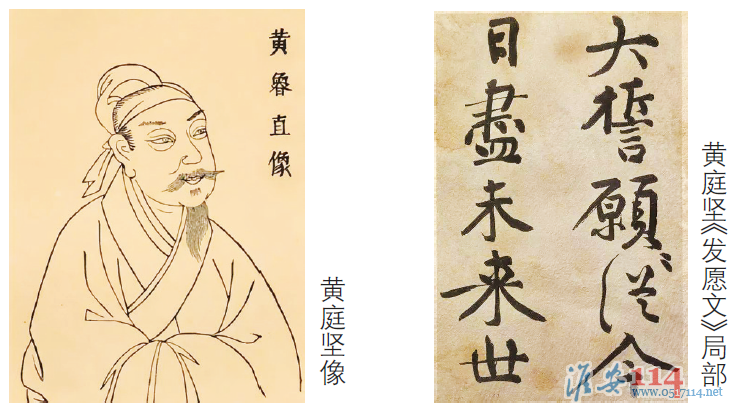 黄魯直像
黄庭坚像
大誓願從今
日盡未来世
黄庭坚《发愿文》局部
淮安114
www.0517114.net